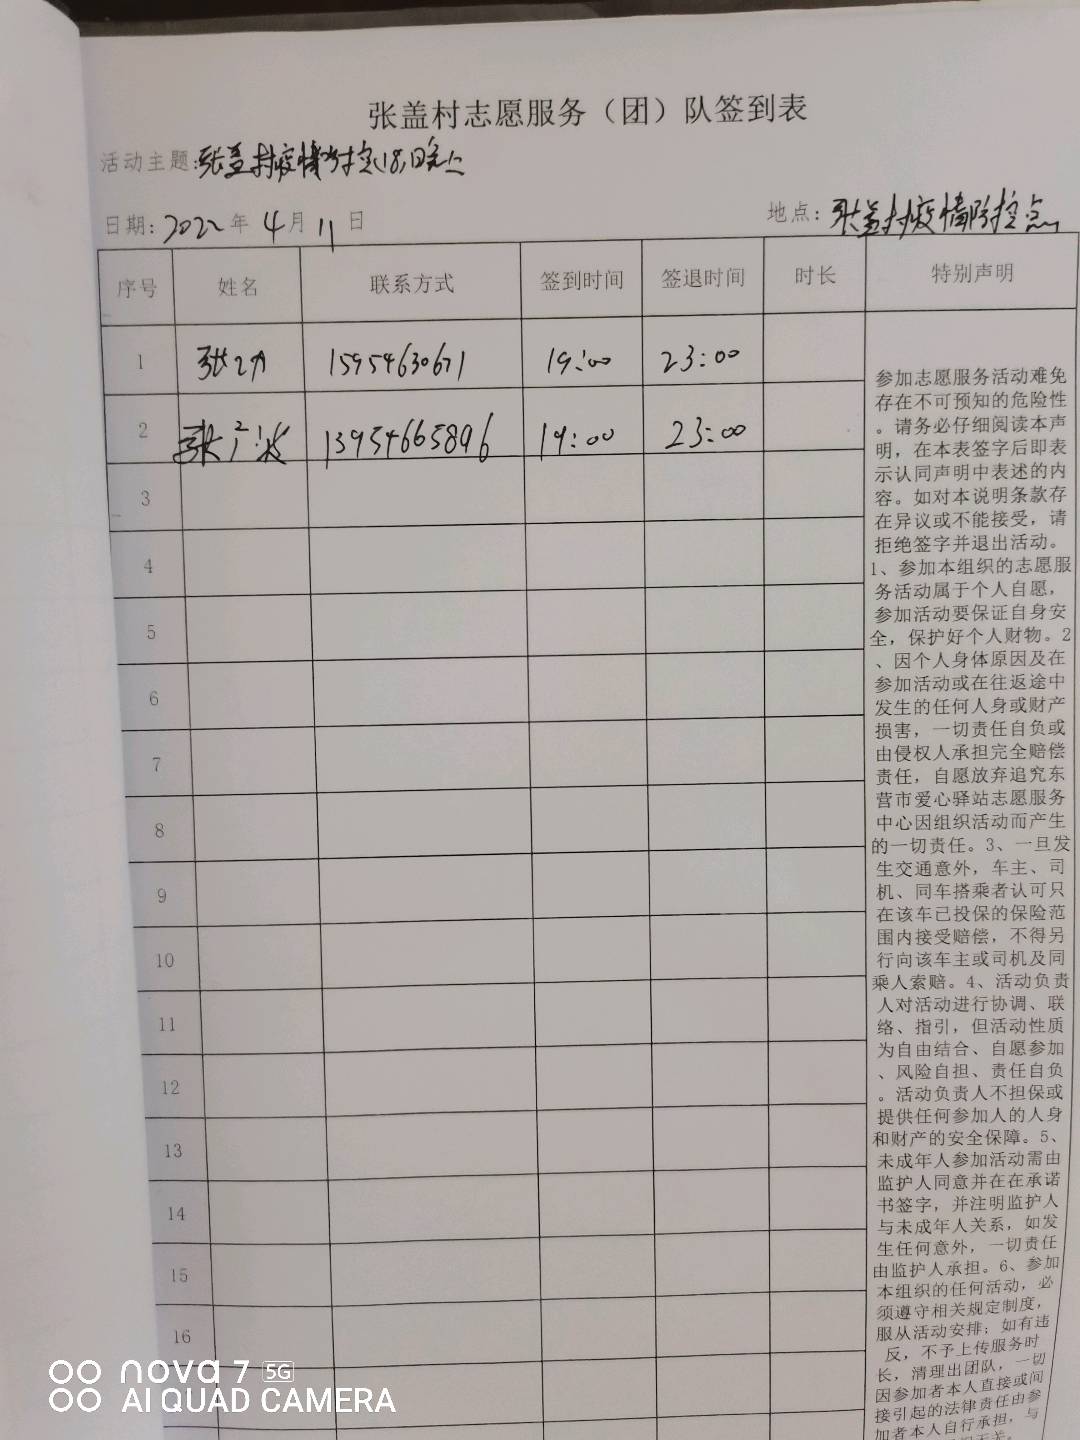 张盖村志愿服务（团）队签到表
活动主题:张盖村疫情
日期: 2022年 4月 11日
地点: 张盖村疫情防控点
序号 姓名 联系方式 签到时间 签退时间 时长 特别声明
1 张 15954630671 19:00 23:00
2 张广 13954665896 19:00 23:00
3
4
5
6
7
8
9
10
11
12
13
14
15
16
参加志愿服务活动难免
存在不可预知的危险性
。请务必仔细阅读本声
明，在本表签字后即表
示认同声明中表述的内
容。如对本说明条款存
在异议或不能接受，请
拒绝签字并退出活动。
1、参加本组织的志愿服
务活动属于个人自愿，
参加活动要保证自身安
全，保护好个人财物。2
、因个人身体原因及在
参加活动或在往返途中
发生的任何人身或财产
损害，一切责任自负或
由侵权人承担完全赔偿
责任，自愿放弃追究东
营市爱心驿站志愿服务
中心因组织活动而产生
的一切责任。3、一旦发
生交通意外，车主、司
机、同车搭乘者认可只
在该车已投保的保险范
围内接受赔偿，不得另
行向该车主或司机及同
乘人索赔。4、活动负责
人对活动进行协调、联
络、指引，但活动性质
为自由结合、自愿参加
、风险自担、责任自负
。活动负责人不担保或
提供任何参加人的人身
和财产的安全保障。5、
未成年人参加活动需由
监护人同意并在在承诺
书签字，并注明监护人
与未成年人关系，如发
生任何意外，一切责任
由监护人承担。6、参加
本组织的任何活动，必
须遵守相关规定制度，
服从活动安排；如有违
反，不予上传服务时
长，清理出团队，一切
因参加者本人直接或间
接引起的法律责任由参
加者本人自行承担，与
nova 7 5G
AI QUAD CAMERA